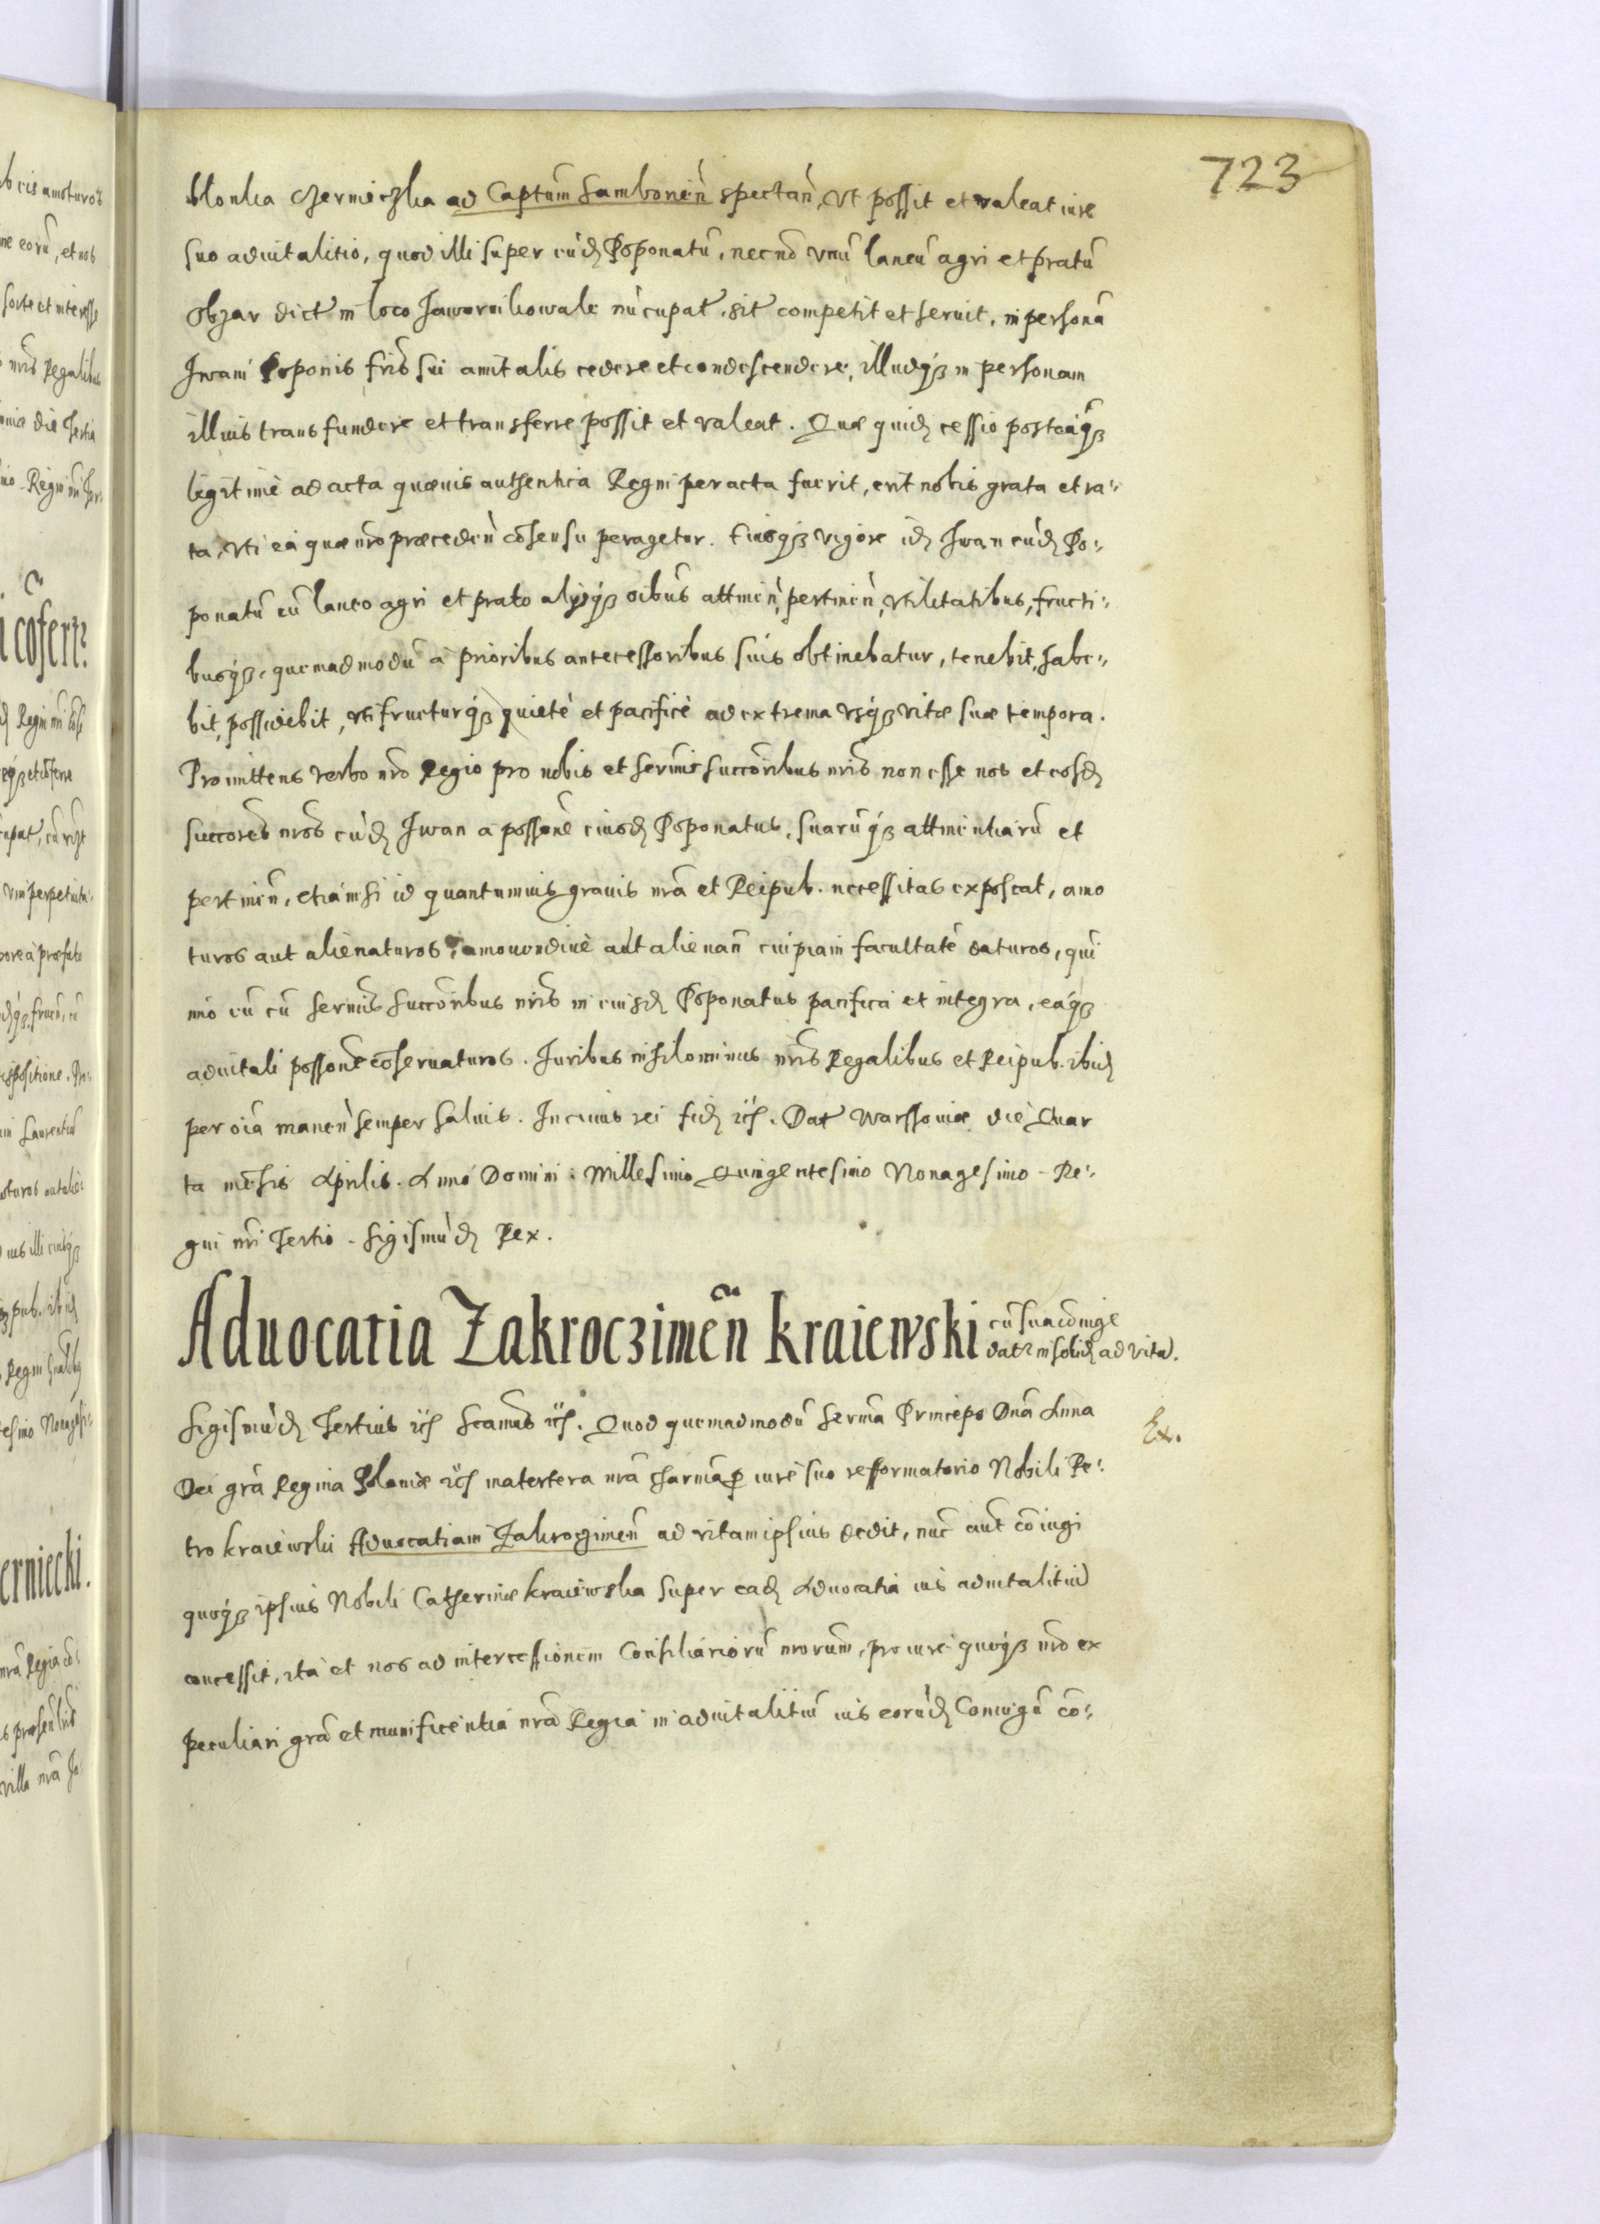 723
blonka czernieczka ad Captum Samborien̄ spectan̄, vt possit et valeat iure
suo aduitalitio, quod illi super eūd Poponatū, necnō vnū laneū agri et pratū
obzar dict in loco Jawornikowale nūcupat, sit competit et seruit, in personā
Iwani Poponis fris sui amitalis cedere et condescendere, illudq3 in personam
illius transfundere et transferre possit et valeat. Quae quid cessio posteaq3
legitimè ad acta quaeuis authentica Regni peracta fuerit, erit nobis grata et ra-
ta, vti ea quae nro praeceden̄ cōsensu peragetur. Eiusq3 vigore id Iwan eūd Po-
ponatū cū laneo agri et prato alijsq3 oibus attinen̄, pertinen̄, vtilitatibus, fructi-
busq3, quemadmodū à prioribus antecessoribus suis obtinebatur, tenebit, habe-
bit, possidebit, vti frueturq3 quietè et pacificè ad extrema vsq3 vitae suae tempora.
Promittens verbo nro Regio pro nobis et sermis succoribus nris non esse nos et eosd
succores nros eūd Iwan a possone eiusd Poponatus, suarūq3 attinentiarū et
pertinen̄, etiamsi id quantumuis grauis nra et Reipub. necessitas exposcat, amo
turos aut alienaturos, amouendiuè aut alienan̄ cuipiam facultatē daturos, qui
imo eū cū sermis succoribus nris in eiusd Poponatus pacifica et integra, eaq3
aduitali possone cōseruaturos. Juribus nihilominus nris Regalibus et Reipub. ibid
per oia manen̄ semper saluis. In cuius rei fid etc. Dat Warssouiae die Quar
ta mēsis Aprilis. Anno Domini Millesimo Quingentesimo Nonagesimo - Re-
gni nri Tertio - Sigismūd Rex.
Aduocatia Zakroczimen̄ kraiewski cū sua cōiuge
datr in solid ad vitā.
Sigismūd Tertius etc Scamus etc. Quod quemadmodū Serma Princeps Dna Anna
Ex.
Dei gra Regina Poloniae etc matertera nra charma p iure suo refformatorio Nobili Pe-
tro kraiewski Aduocatiam Zakroczimen̄ ad vitam ipsius dedit, nuc aut cōiugi
quoq3 ipsius Nobili Catherinae kraiewska super ead Aduocatia ius aduitalitiū
concessit, ita et nos ad intercessionem Consiliariorū nrorum, pro iure quoq3 nro ex
peculiari gra et munificentia nra Regia in aduitalitiū ius eorūd Coniugū cō-